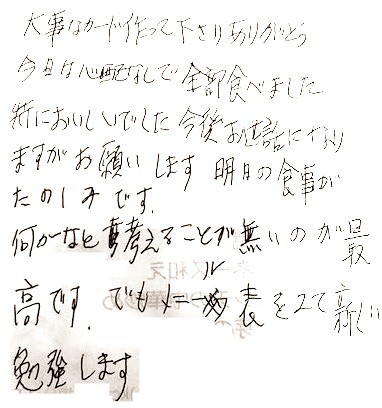 大事なカード作って下さりありがとう
今日は心配なしで全部食べました
特においしいでした今後お世話になり
ますがお願いします 明日の食事が
たのしみです.
何かなと考えることが無いのが最
高です. でもメニュー表を見て新しい
勉強します